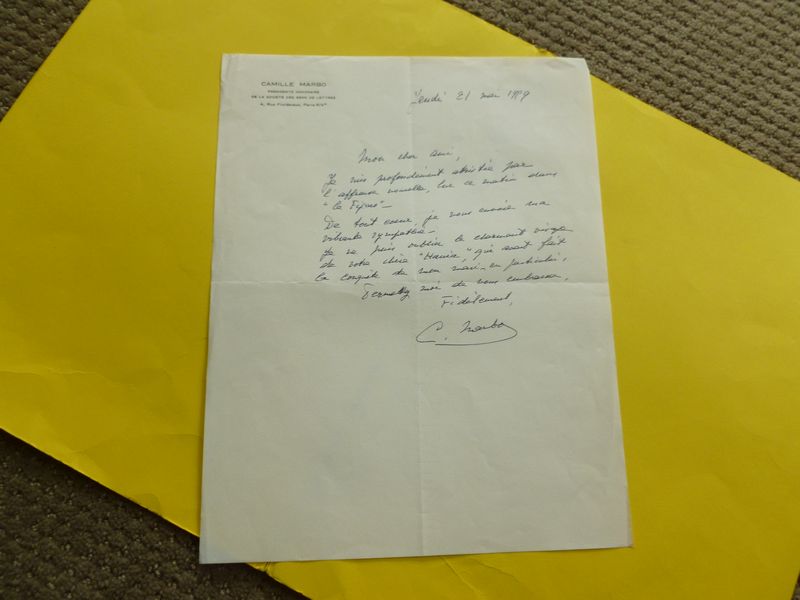 CAMILLE MARBO
PRÉSIDENTE HONORAIRE
DE LA SOCIÉTÉ DES GENS DE LETTRES
4, Rue Froidevaux, Paris-XIVe
Jeudi 21 mai
Mon cher ami,
Je suis profondément attristée par
l'affreuse nouvelle, lue ce matin dans
"le Figaro" -
De tout coeur, je vous envoie ma
vibrante sympathie -
Je ne puis oublier le charmant visage
de votre chère "Hania", qui avait fait
la conquête de mon mari - en particulier,
Permettez moi de vous embrasser,
Fidèlement,
C. Marbo